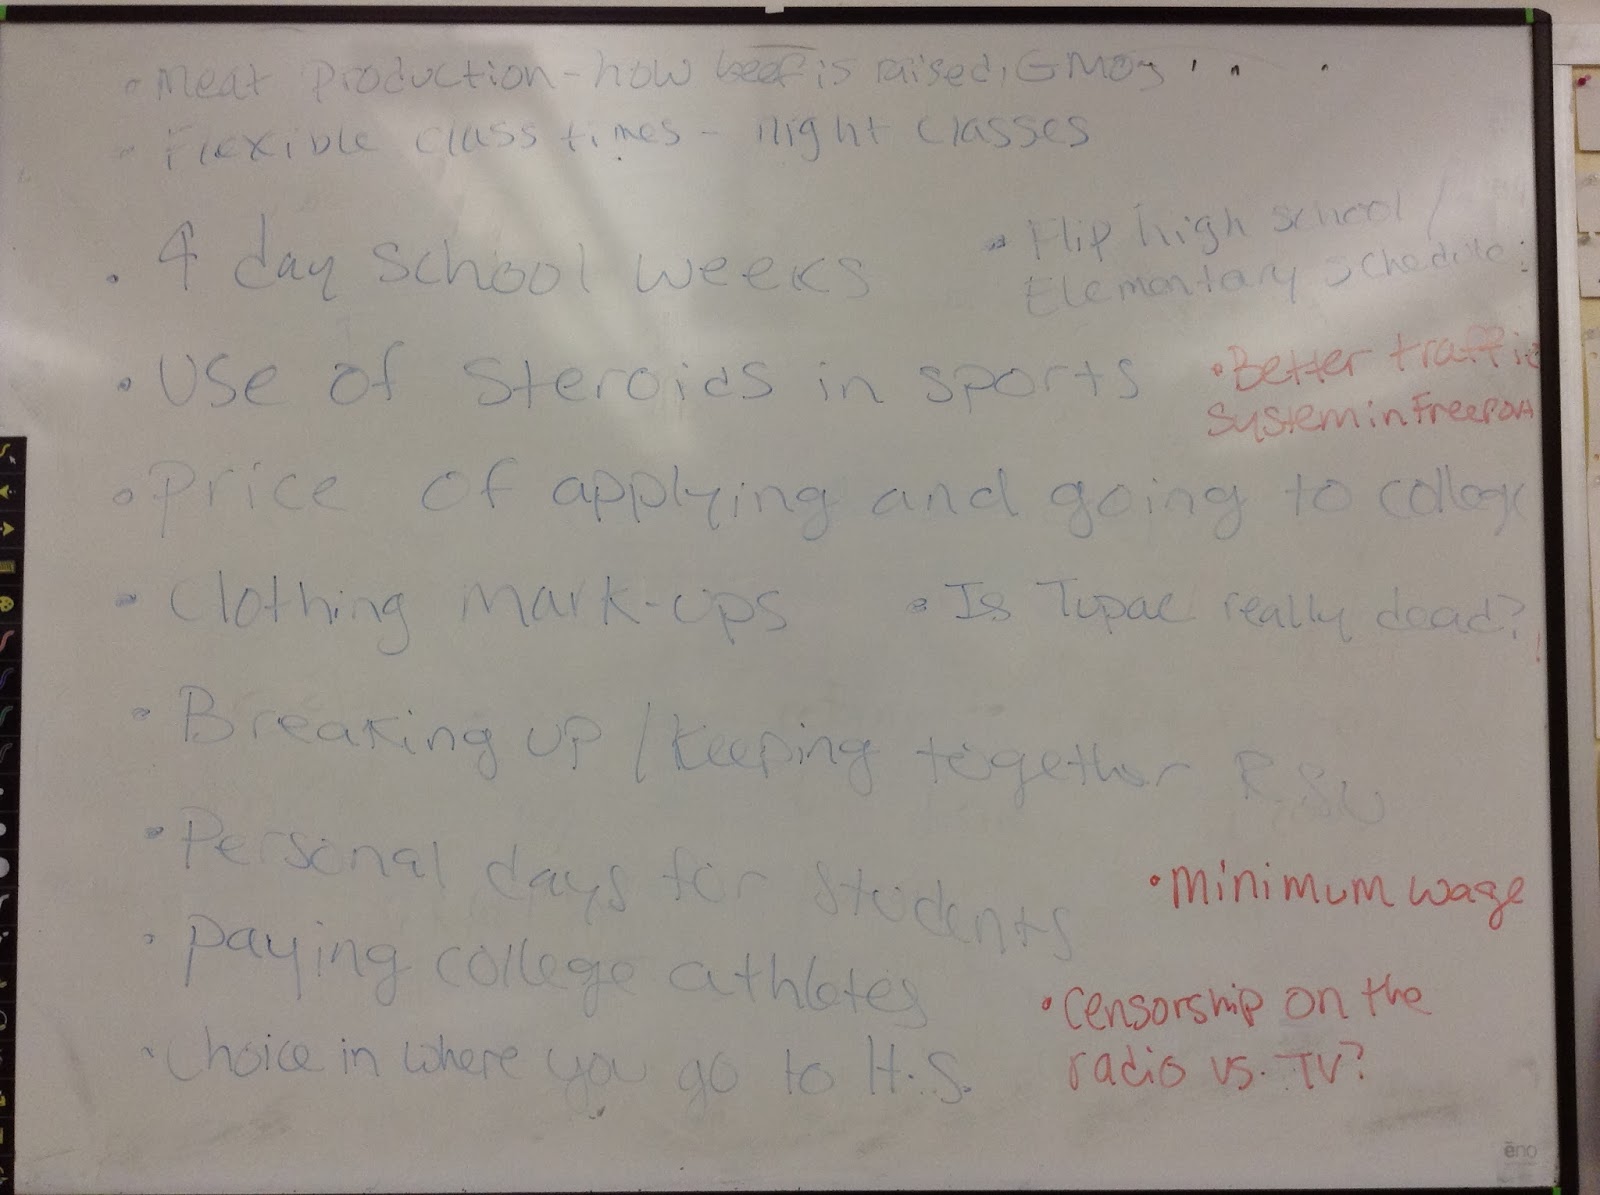 • Meat Production - how beef is raised, GMOs . . .
• Flexible class times - night classes
• 4 day school weeks
• Flip high school /
Elementary schedule.
• Use of steroids in sports
• Better traffic
system in Freeport
• Price of applying and going to college
• Clothing mark-ups
• Is Tupac really dead?
• Breaking up / Keeping together RSU
• Personal days for students
• Minimum wage
• Paying college athletes
• Censorship on the
radio vs. TV?
• Choice in where you go to H.S.
ēno